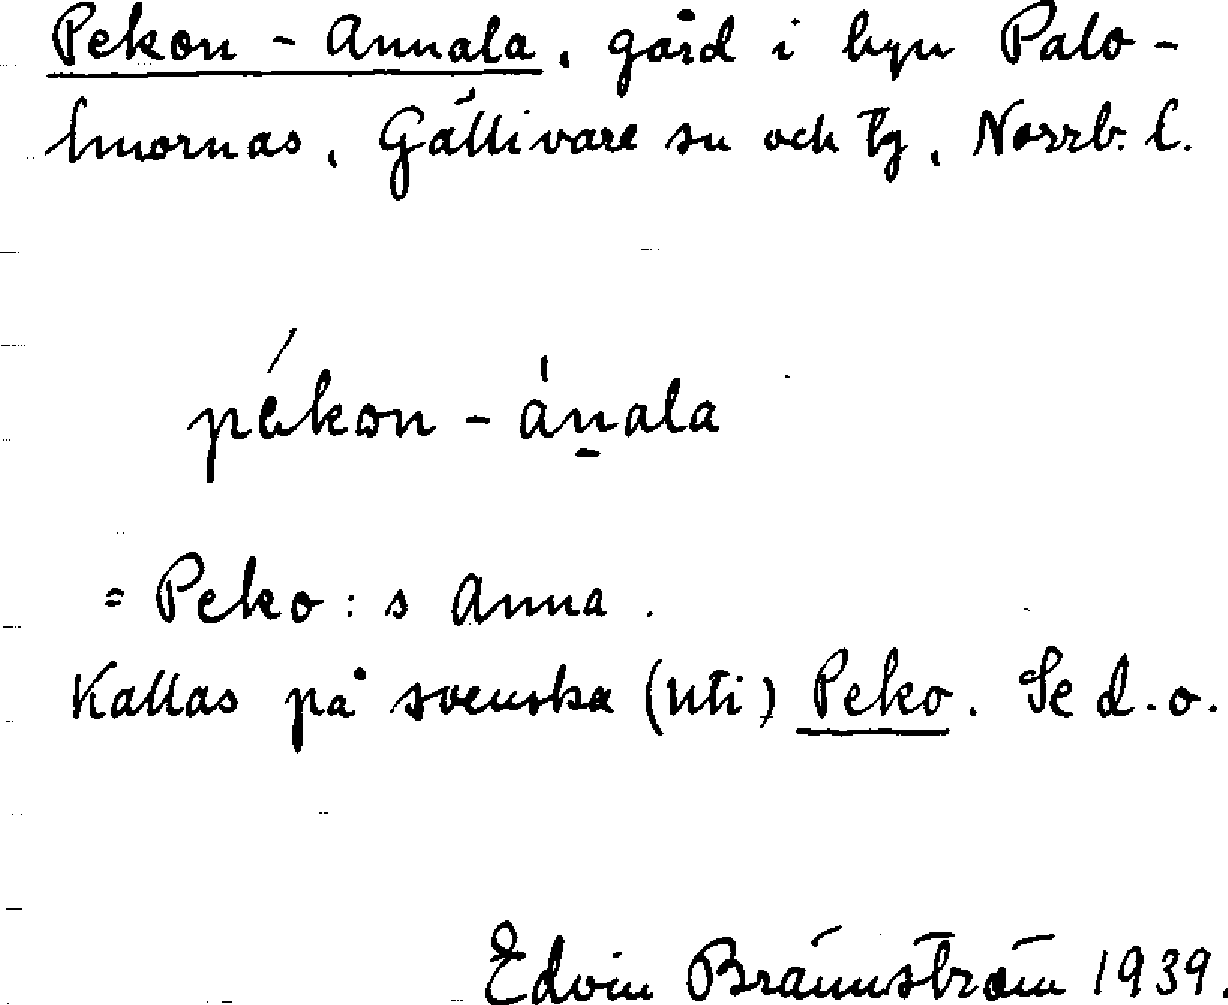 Pekon - Annala, gård i byn Palo-
huornas, Gällivare sn och tg, Norrb. l.
pékon - ánala
= Peko:s Anna.
Kallas på svenska (uti) Peko. Se d.o.
Edvin Brännström 1939.